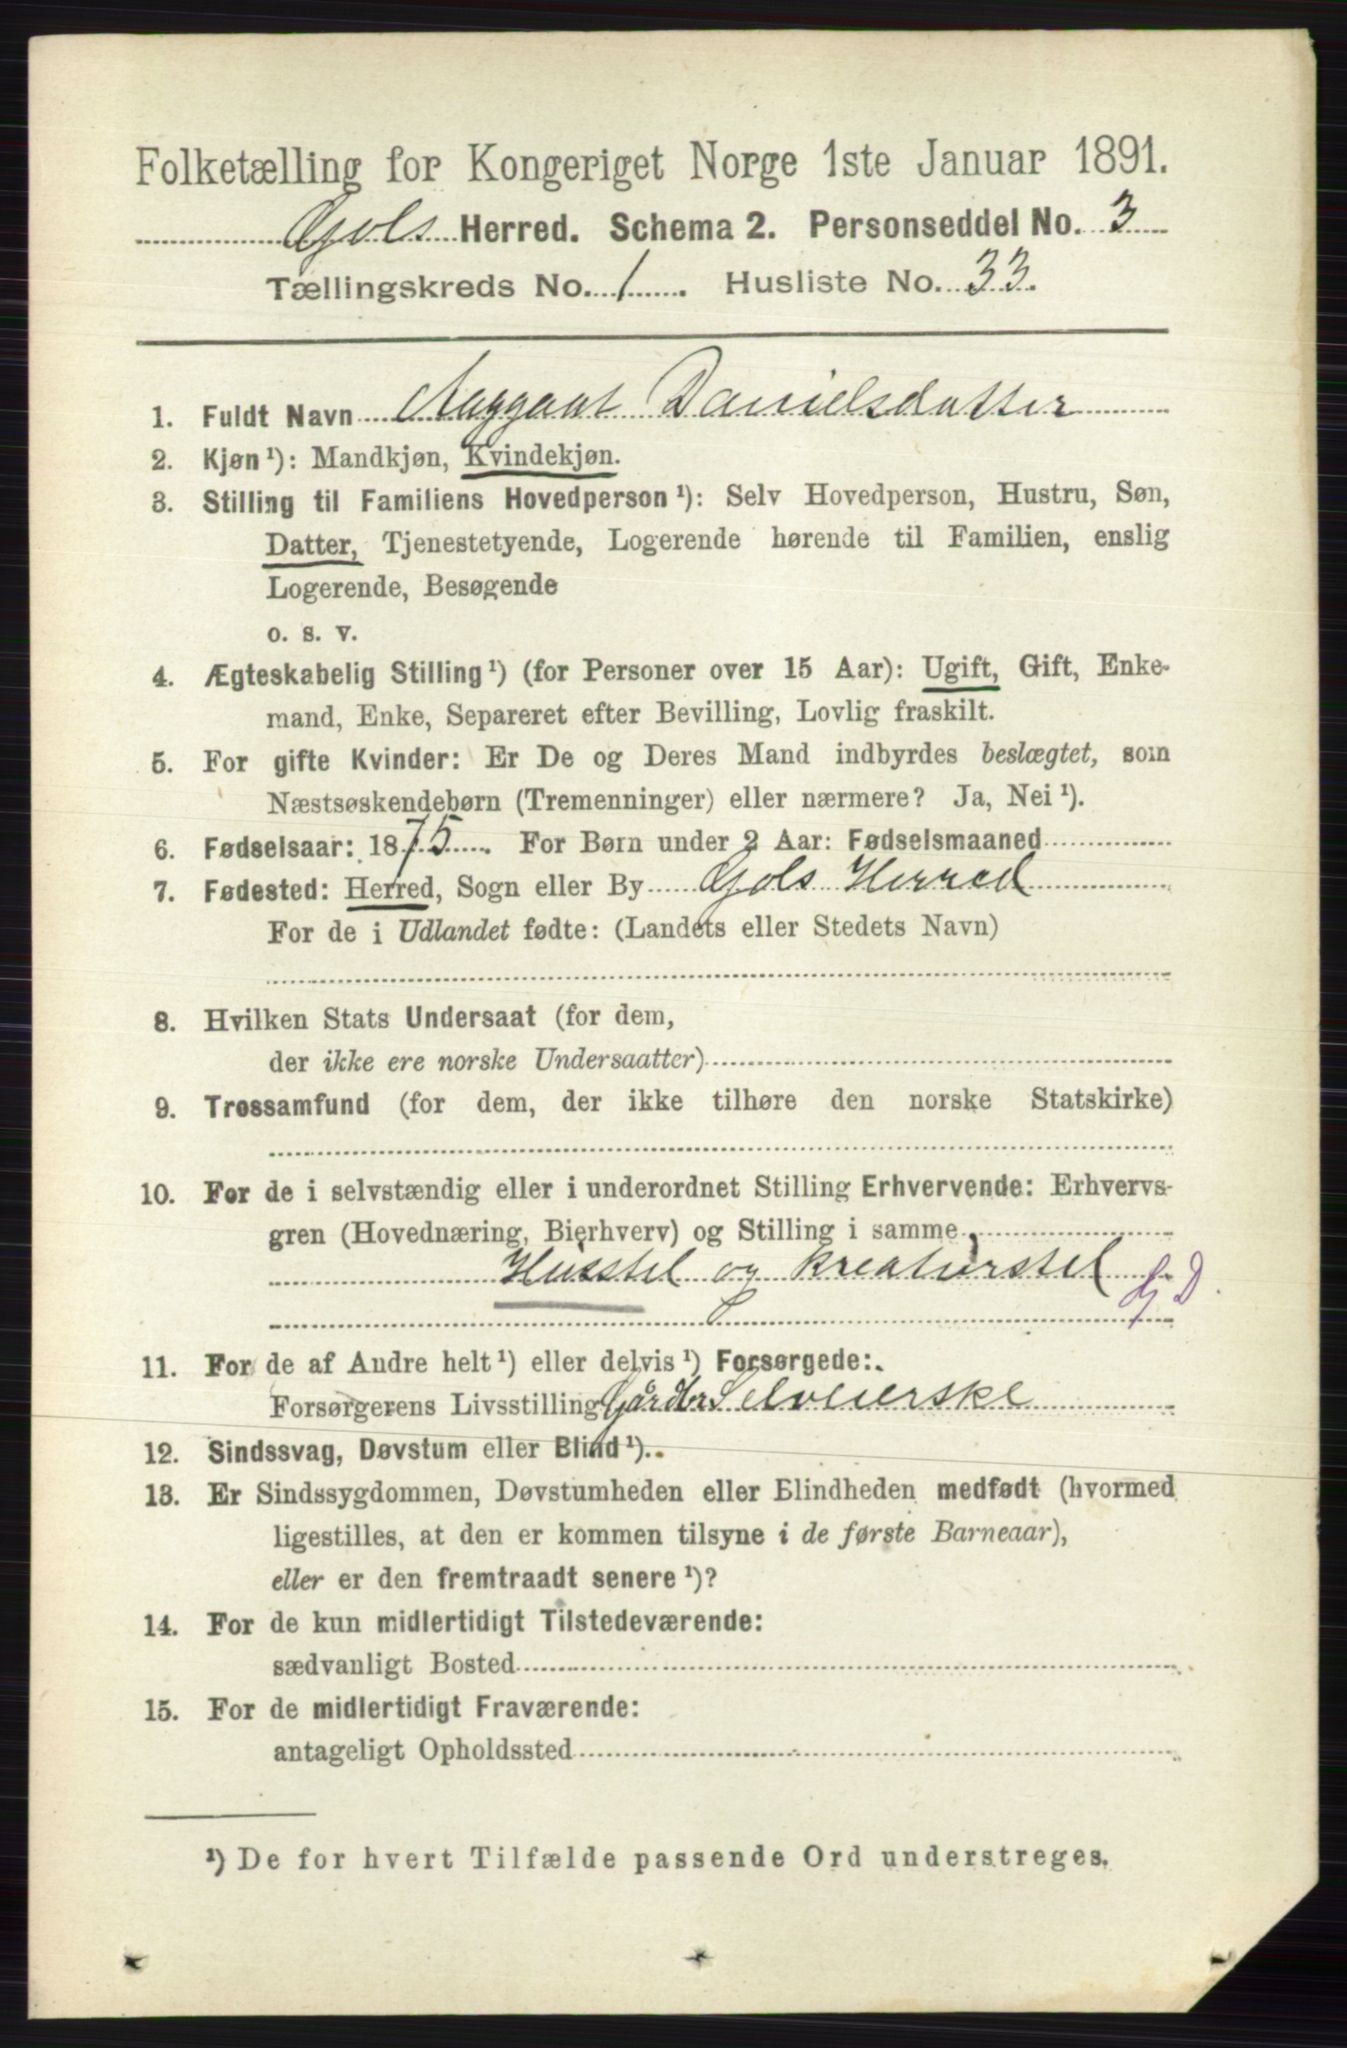 Folketælling for Kongeriget Norge 1ste Januar 1891.
Gols Herred. Schema 2. Personseddel No. 3
Tællingskreds No. 1. Husliste No. 33.
1. Fuldt Navn Danielsdatter
2. Kjøn ¹): Mandkjøn, Kvindekjøn.
3. Stilling til Familiens Hovedperson ¹): Selv Hovedperson, Hustru, Søn,
Datter, Tjenestetyende, Logerende hørende til Familien, enslig
Logerende, Besøgende
o. s. v.
4. Ægteskabelig Stilling ¹) (for Personer over 15 Aar): Ugift, Gift, Enke-
mand, Enke, Separeret efter Bevilling, Lovlig fraskilt.
5. For gifte Kvinder: Er De og Deres Mand indbyrdes beslægtet, som
Næstsøskendebørn (Tremenninger) eller nærmere? Ja, Nei ¹).
6. Fødselsaar: 1875. For Børn under 2 Aar: Fødselsmaaned
7. Fødested: Herred, Sogn eller By Gols Herred
For de i Udlandet fødte: (Landets eller Stedets Navn)
8. Hvilken Stats Undersaat (for dem,
der ikke ere norske Undersaatter)
9. Trossamfund (for dem, der ikke tilhøre den norske Statskirke)
10. For de i selvstændig eller i underordnet Stilling Erhvervende: Erhvervs-
gren (Hovednæring, Bierhverv) og Stilling i samme
Husstel og Kreaturstel
11. For de af Andre helt ¹) eller delvis ¹) Forsørgede:
Forsørgerens Livsstilling Gårdbr Selveierske
12. Sindssvag, Døvstum eller Blind ¹).
13. Er Sindssygdommen, Døvstumheden eller Blindheden medfødt (hvormed
ligestilles, at den er kommen tilsyne i de første Barneaar),
eller er den fremtraadt senere ¹)?
14. For de kun midlertidigt Tilstedeværende:
sædvanligt Bosted
15. For de midlertidigt Fraværende:
antageligt Opholdssted
¹) De for hvert Tilfælde passende Ord understreges.